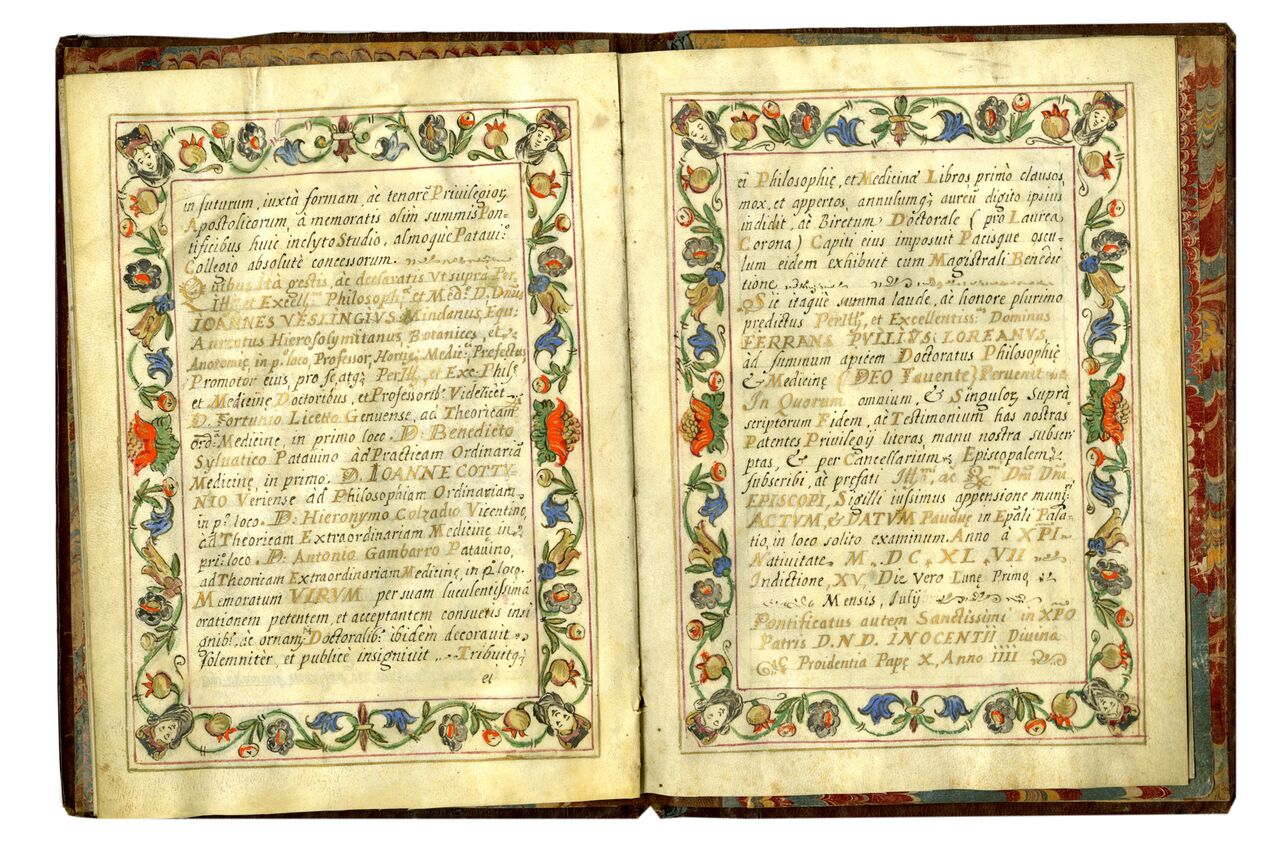 in futurum, iuxtà formam, ac tenorẽ Priuilegior,
Apostolicorum, à memoratis olim summis Pon-
tificibus huic inclyto Studio, almoque Pataui:º
Collegio absolutè concessorum.
Quibus Ità gestis, ac declaratis Vt supra Per
Ill: et Excell: Philosoph: et Med: D. Dnus
IOANNES VESLINGIVS Mindanus, Equ:
Auratus Hierosolymitanus, Botanices, et
Anotomię in p:º loco, Professor, Horti Medic: Prefectus,
Promotor eius, pro se, atq; PerIll: et Exc: Phil:
et Medicinę Doctoribus, et Professorib: Videlicet
D. Fortunio Liceto Genuense, ad Theoricam
ord: Medicinę, in primo loco. D: Benedicto
Syluatico Patauino ad Practicam Ordinariã
Medicinę, in primo. D. IOANNE COTTV-
NIO Veriense ad Philosophiam Ordinariam
in p:º loco. D: Hieronymo Colzadio Vicentino,
ad Theoricam Extraordinariam Medicinę in
pri:º loco. D: Antonio Gambarro Patauino,
ad Theoricam Extraordinariam Medicinę, in p:º loco.
Memoratum VIRVM per suam luculentissimã
orationem petentem, et acceptantem consuetis insi
gnib:, ac ornam: Doctoralib: ibidem decorauit
solemnitèr, et publicè insigniuit. Tribuitq;
ei
ei Philosophię, et Medicinæ Libros, primò clausos,
mox, et appertos, annulumq; aureũ digito ipsius
indidit, ac Biretum Doctorale ( pro Laurea
Corona ) Capiti eius imposuit Pacisque oscu-
lum eidem exhibuit cum Magistrali Benedic
tione
Sic itaque summa laude, ac honore plurimo
predictus PerIll:, et Excellentiss: Dominus
FERRANS PVLLIVS LOREANVS,
ad summum apicem Doctoratus Philosophię
& Medicinę ( DEO fauente ) Peruenit
In Quorum omnium, & Singulor, supra
scriptorum Fidem, ac Testimonium has nostras
Patentes Priuilegij literas manu nostra subscr
ptas, & per Cancellarium Episcopalem
subscribi, ac prefati Ill:mi, ac R:mi Dni Dni
EPISCOPI, Sigilli iussimus appensione muni:
ACTVM, & DATVM Paduę in Epali Pala-
tio, in loco solito examinum. Anno à XPI
Natiuitate M. DC. XL. VII
Indictione, XV, Die Vero Lunę Primo,
Mensis, Iulij
Pontificatus autem Sanctissimi in XPO
Patris D.N.D. INOCENTII Diuina
Prouidentia Papę X, Anno IIII